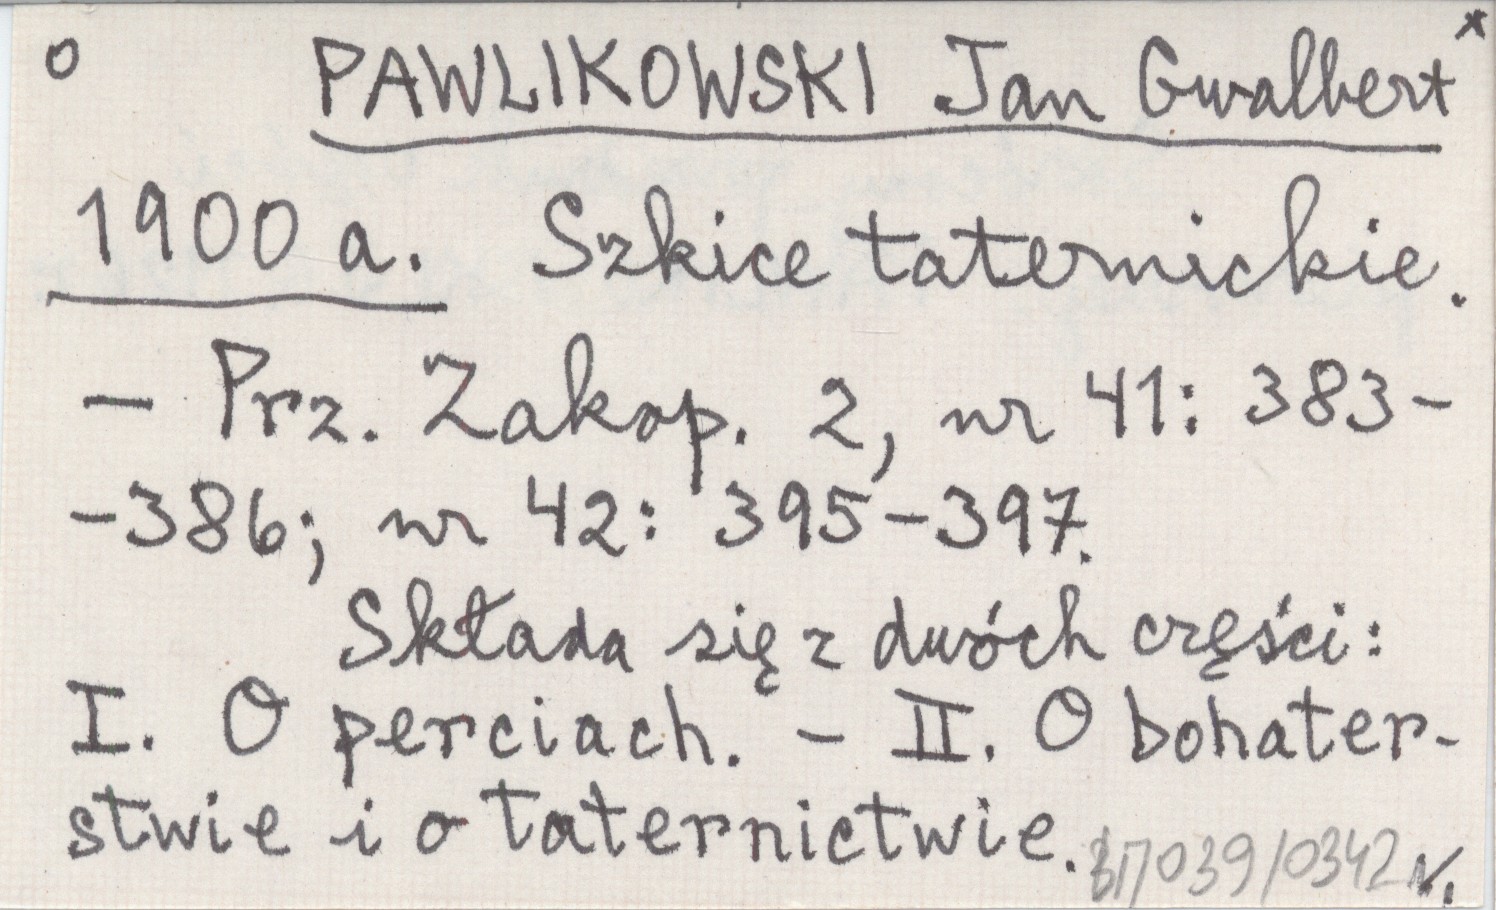 o PAWLIKOWSKI Jan Gwalbert *
1900 a. Szkice taternickie.
– Prz. Zakop. 2, nr 41: 383–
–386; nr 42: 395–397.
Składa się z dwóch części:
I. O perciach. – II. O bohater-
stwie i o taternictwie.
039/0342